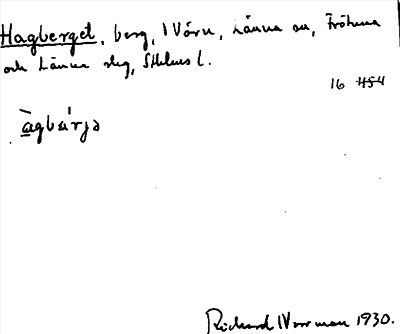 Hagberget, berg, i Våru, Länna sn, Frötuna
och Länna slg, Sthlms l.
16 454
àgbärjə
Richard Norrman 1930.